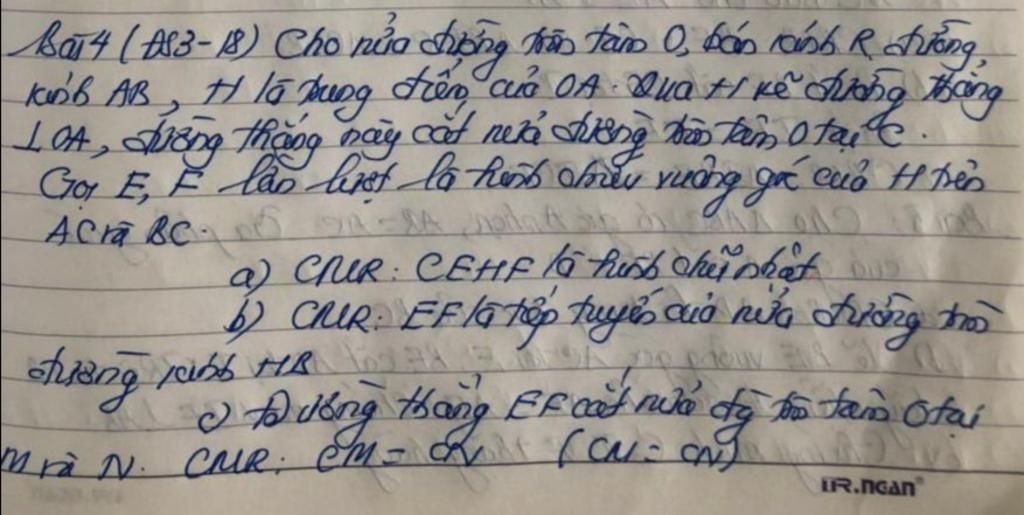 Bài 4 (ĐS3-18) Cho nửa đường tròn tâm O, bán kính R, đường
kính AB, H là trung điểm của OA. Qua H kẻ đường thẳng
⊥ OA, đường thẳng này cắt nửa đường tròn tâm O tại C.
Gọi E, F lần lượt là hình chiếu vuông góc của H trên
AC và BC.
a) CMR: CEHF là hình chữ nhật
b) CMR: EF là tiếp tuyến của nửa đường tròn
đường kính HB
c) Đường thẳng EF cắt nửa đg tròn tâm O tại
M và N. CMR: CM = CN (CM = CN)
DR.NGAN